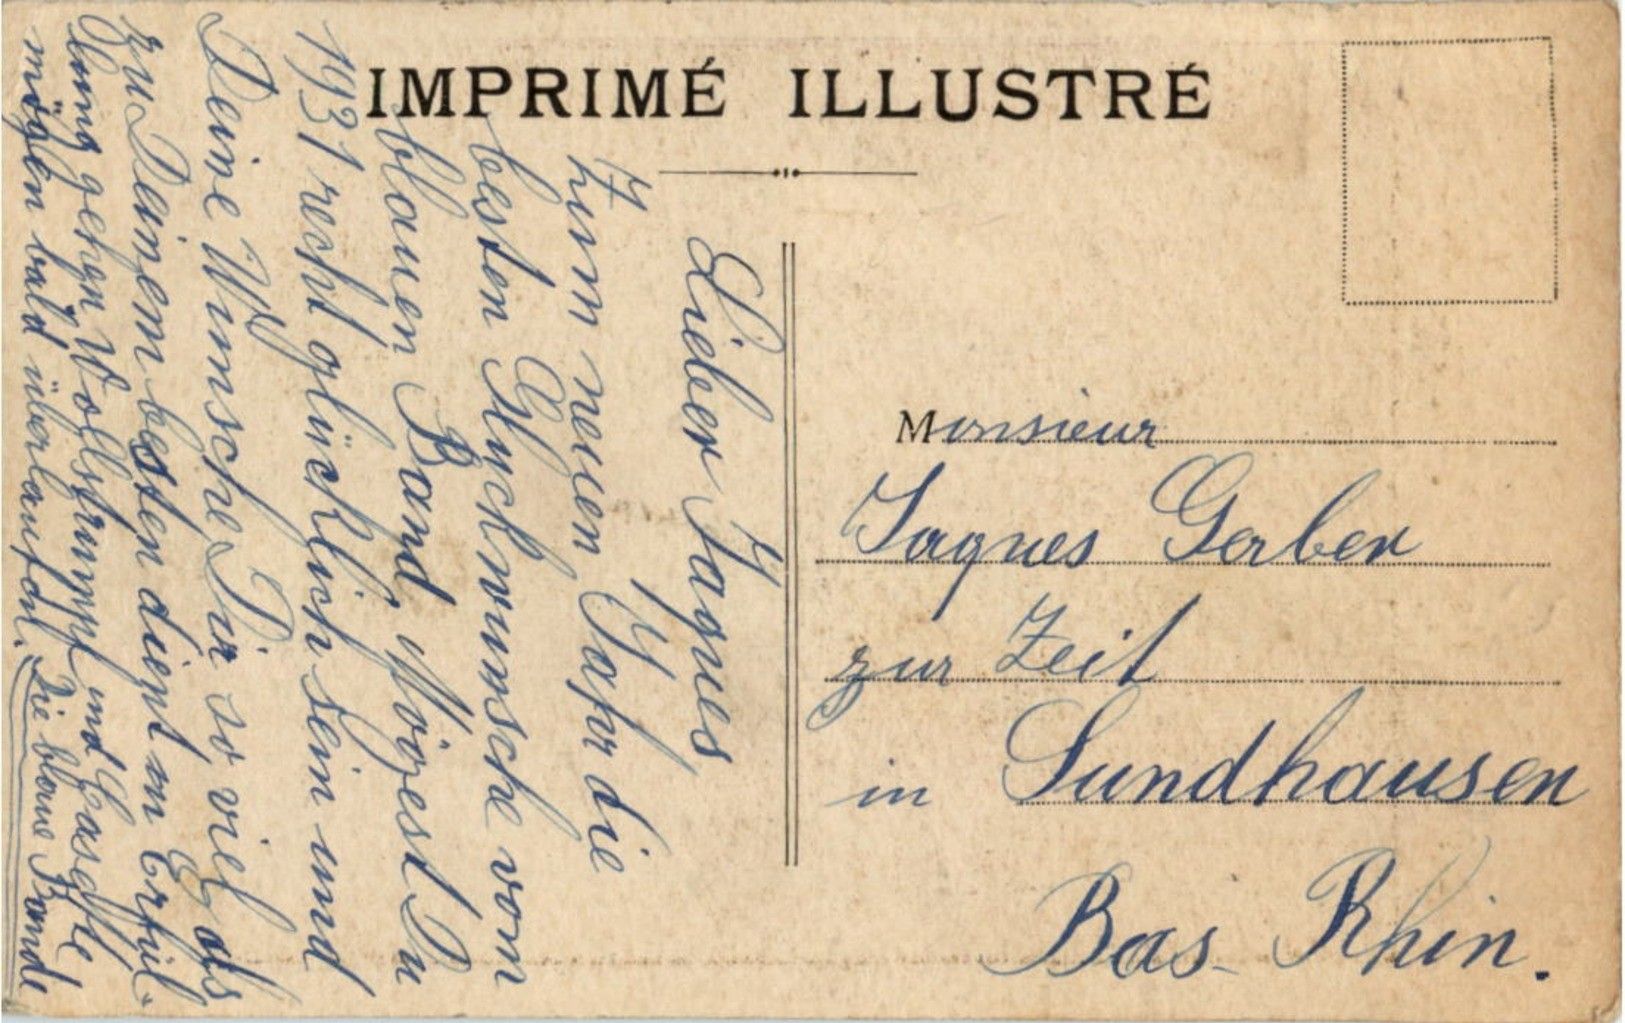 IMPRIMÉ ILLUSTRÉ
Lieber Jagues
Zum neuen Jahr die
besten Glückwunsche vom
blauen Band. Mögest Du
1931 recht glücklich sein und
Deine Wünsche Dir so viel als
zu Deinem besten dient in Erfül-
lung gehen Vollstrumpf und Gasaffle
mögen bald überlaufen. Die blaue Bande
Monsieur
Jaques Gerber
zur Zeit
in Sundhausen
Bas-Rhin.